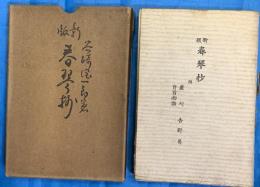 谷崎潤一郎著
新版
春琴抄
新版
春琴抄
附
蘆刈
吉野葛
盲目物語